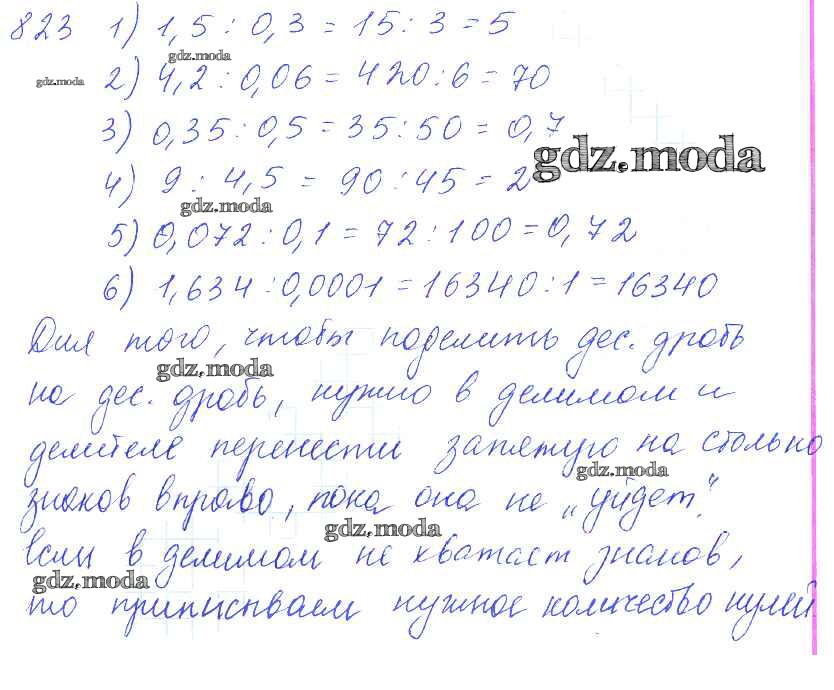 823 1) 1,5 : 0,3 = 15 : 3 = 5
gdz.moda
gdz.moda 2) 4,2 : 0,06 = 420 : 6 = 70
3) 0,35 : 0,5 = 35 : 50 = 0,7
gdz.moda
4) 9 : 4,5 = 90 : 45 = 2
gdz.moda
5) 0,072 : 0,1 = 72 : 100 = 0,72
6) 1,634 : 0,0001 = 16340 : 1 = 16340
Для того, чтобы поделить дес. дробь
gdz.moda
на дес. дробь, нужно в делимом и
делителе перенести запятую на столько
gdz.moda
знаков вправо, пока она не „уйдет".
gdz.moda
Если в делимом не хватает знаков,
gdz.moda
то приписываем нужное количество нулей